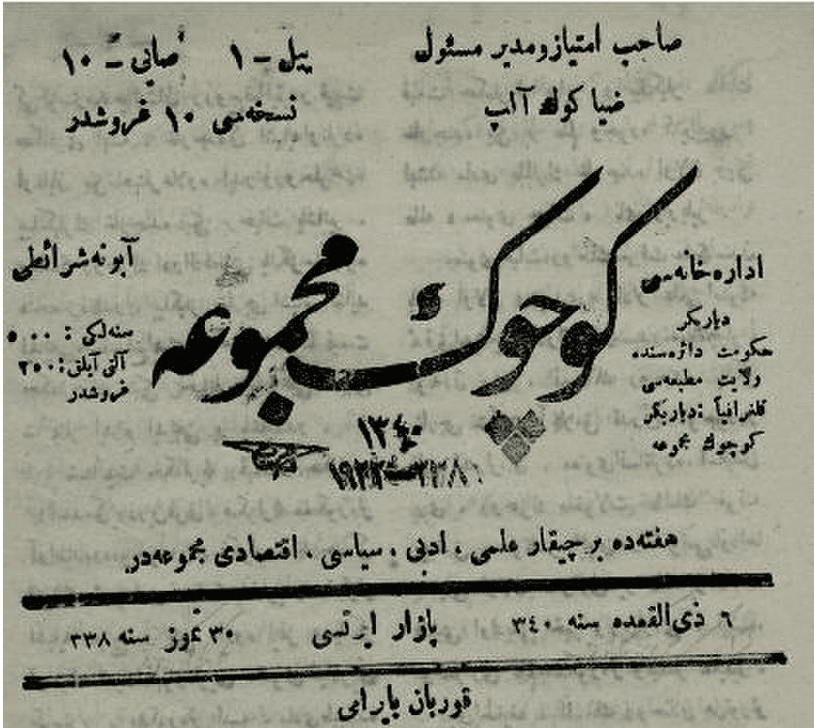 صاحب امتیاز و مدیر مسئول
ضیا كوك آلپ
ییل ـ ۱ صایی ـ ۱۰
نسخه‌سی ۱۰ غروشدر
كوچوك مجموعه
۱۳۴۰
اداره خانه‌سی
دیاربكر
حكومت دائره‌سنده
ولایت مطبعه‌سی
تلغرافیاً : دیاربكر
كوچوك مجموعه
آبونه شرائطی
سنه‌لكی : ۵۰۰
آلتی آیلق : ۲۵۰
غروشدر
هفته‌ده بر چیقار علمی ، ادبی ، سیاسی ، اقتصادی مجموعه‌در
٦ ذی‌القعده سنه ۳٤۰ پازار ایرتسی ۳۰ تموز سنه ۳۳۸
قوربان بایرامی